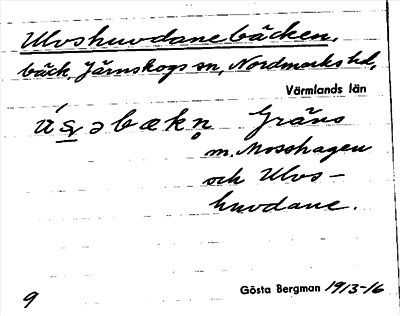 Ulvshuvdane bäcken,
bäck, Järnskogs sn, Nordmarks hd,
Värmlands län
Gräns
m. Mosshagen
och Ulvs-
huvdane.
9
Gösta Bergman 1913-16